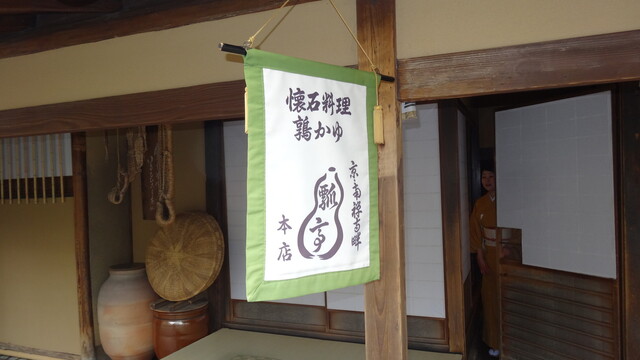 懐石料理
鶉かゆ
京・南禅寺畔
瓢亭
本店